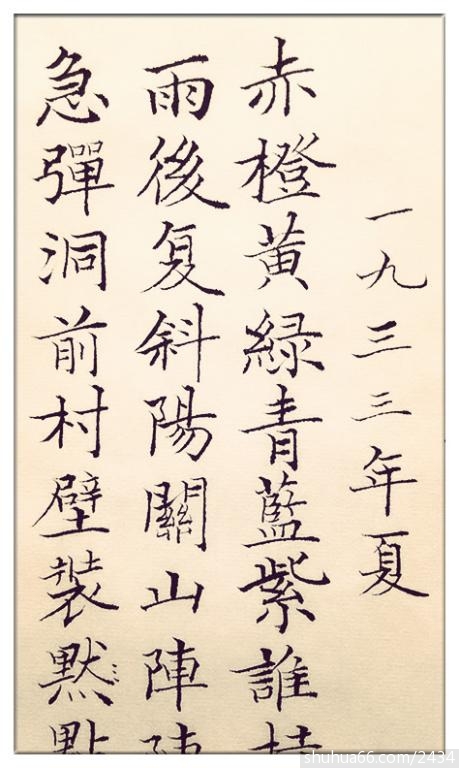 一九三三年夏
赤橙黄緑青藍紫誰
雨後复斜陽關山陣
急彈洞前村壁裝黙
shuhua66.com/2434